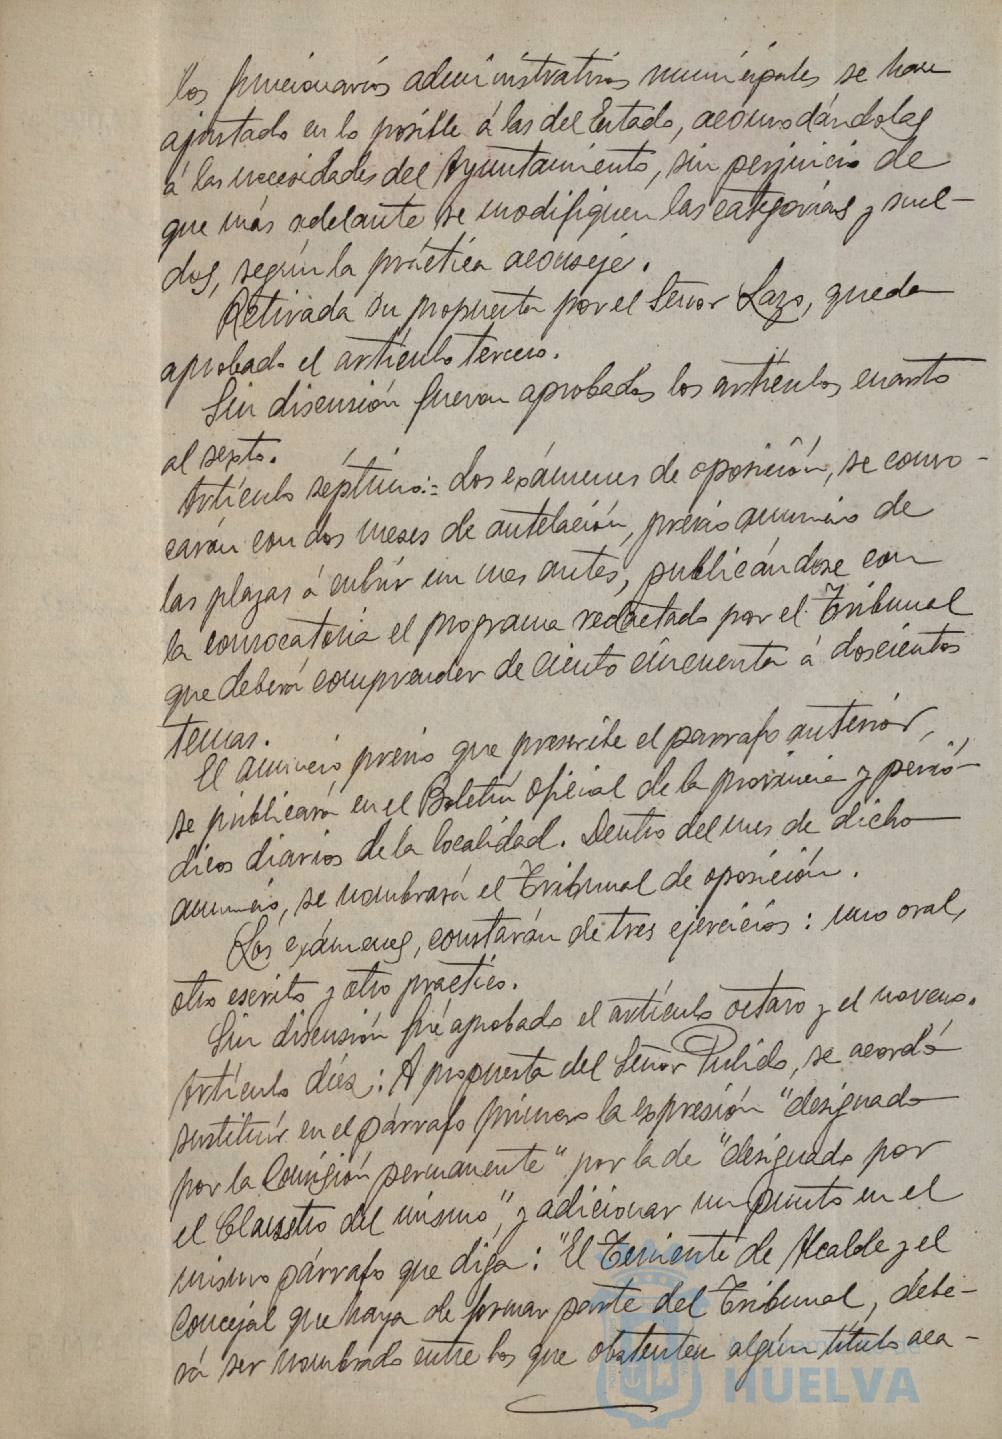 los funcionarios administrativos municipales se han
ajustado en lo posible á las del Estado, acomodándolas
á las necesidades del Ayuntamiento, sin perjuicio de
que más adelante se modifiquen las categorías y suel-
dos, según la práctica aconseje.
Retirada su propuesta por el Señor Lazo, queda
aprobado el artículo tercero.
Sin discusión fueron aprobados los artículos cuarto
al sexto.
Artículo séptimo:= Los exámenes de oposición, se convo-
carán con dos meses de antelación, previo anuncio de
las plazas á cubrir un mes antes, publicándose con
la convocatoria el programa redactado por el Tribunal
que deberá comprender de ciento cincuenta á doscientos
temas.
El anuncio previo que prescribe el parrafo anteriór,
se publicará en el Boletín Oficial de la provincia y perió-
dicos diarios de la localidad. Dentro del mes de dicho
anuncio, se nombrará el Tribunal de oposición.
Los exámenes, constarán de tres ejercicios: uno oral,
otro escrito y otro practico.
Sin discusión fué aprobado el artículo octavo y el noveno.
Artículo diéz: A propuesta del Señor Pulido, se acordó
sustituir en el párrafo primero la expresión "designado
por la Comisión permanente" por la de "designado por
el Claustro del mismo", y adicionar un punto en el
mismo párrafo que diga: "El Teniente de Alcalde y el
Concejal que haya de formar parte del Tribunal, debe-
rá ser nombrado entre los que obstenten algún título aca-
HUELVA